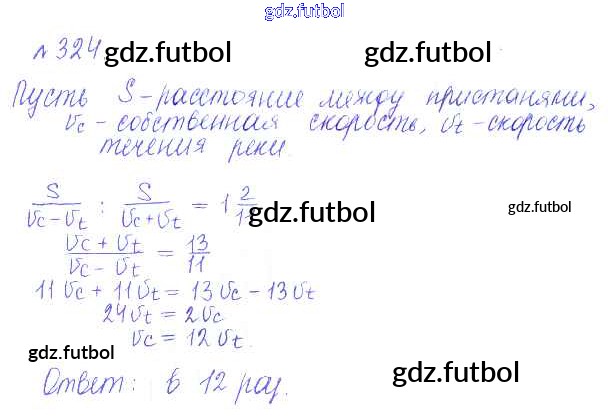 gdz.futbol
№ 324 gdz.futbol gdz.futbol
Пусть S - расстояние между пристанями,
Vc - собственная скорость, Vt - скорость
течения реки.
S/(Vc - Vt) : S/(Vc + Vt) = 1 2/11 gdz.futbol gdz.futbol
(Vc + Vt)/(Vc - Vt) = 13/11
11 Vc + 11 Vt = 13 Vc - 13 Vt
24 Vt = 2 Vc
Vc = 12 Vt.
gdz.futbol gdz.futbol
Ответ: в 12 раз.